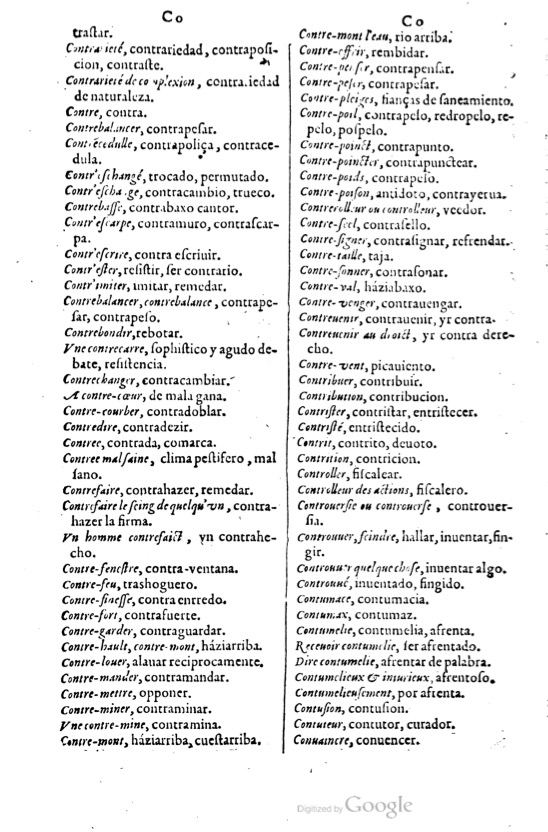 Co
traſtar.
Contrarieté, contrariedad, contrapoſi-
cion, contraſte.
Contrarieté de complexion, contrariedad
de naturaleza.
Contre, contra.
Contrebalancer, contrapeſar.
Contrecedulle, contrapoliça, contrace-
dula.
Contr'eſchangé, trocado, permutado.
Contr'eſchange, contracambio, trueco.
Contrebaſſe, contrabaxo cantor.
Contr'eſcarpe, contramuro, contraſcar-
pa.
Contr'eſcrire, contra eſcriuir.
Contr'eſter, reſiſtir, ſer contrario.
Contr'imiter, imitar, remedar.
Contrebalancer, contrebalance, contrape-
ſar, contrapeſo.
Contrebondir, rebotar.
Vne contrecarre, ſophiſtico y agudo de-
bate, reſiſtencia.
Contrechanger, contracambiar.
A contre-cœur, de mala gana.
Contre-courber, contradoblar.
Contredire, contradezir.
Contree, contrada, comarca.
Contree malſaine, clima peſtifero, mal
ſano.
Contrefaire, contrahazer, remedar.
Contrefaire le ſeing de quelqu'vn, contra-
hazer la firma.
Vn homme contrefaict, vn contrahe-
cho.
Contre-feneſtre, contra-ventana.
Contre-feu, trashoguero.
Contre-fineſſe, contra enredo.
Contre-fort, contrafuerte.
Contre-garder, contraguardar.
Contre-hault, contre-mont, háziarriba.
Contre-louer, alauar reciprocamente.
Contre-mander, contramandar.
Contre-mettre, opponer.
Contre-miner, contraminar.
Vne contre-mine, contramina.
Contre-mont, háziarriba, cueſtarriba.
Co
Contre-mont l'eau, rio arriba.
Contre-offrir, rembidar.
Contre-penſer, contrapenſar.
Contre-peſer, contrapeſar.
Contre-pleiges, fianças de ſaneamiento.
Contre-poil, contrapelo, redropelo, re-
pelo, poſpelo.
Contre-poinct, contrapunto.
Contre-poincter, contrapunctear.
Contre-poids, contrapelo.
Contre-poiſon, antidoto, contrayerua.
Contrerolleur ou controlleur, veedor.
Contre-ſeel, contraſello.
Contre-ſigner, contraſignar, refrendar.
Contre-taille, taja.
Contre-ſonner, contraſonar.
Contre-val, háziabaxo.
Contre-venger, contrauengar.
Contreuenir, contrauenir, yr contra.
Contreuenir au droict, yr contra dere-
cho.
Contre-vent, picauiento.
Contribuer, contribuir.
Contribution, contribucion.
Contriſter, contriſtar, entriſtecer.
Contriſté, entriſtecido.
Contrit, contrito, deuoto.
Contrition, contricion.
Controller, fiſcalear.
Controlleur des actions, fiſcalero.
Controuerſie ou controuerſe, controuer-
ſia.
Controuuer, feindre, hallar, inuentar, fin-
gir.
Controuuer quelque choſe, inuentar algo.
Controuué, inuentado, fingido.
Contumace, contumacia.
Contumax, contumaz.
Contumelie, contumelia, afrenta.
Receuoir contumelie, ſer afrentado.
Dire contumelie, afrentar de palabra.
Contumelieux & iniurieux, afrentoſo.
Contumelieuſement, por afrenta.
Contuſion, contuſion.
Contuteur, contutor, curador.
Conuaincre, conuencer.
Digitized by Google